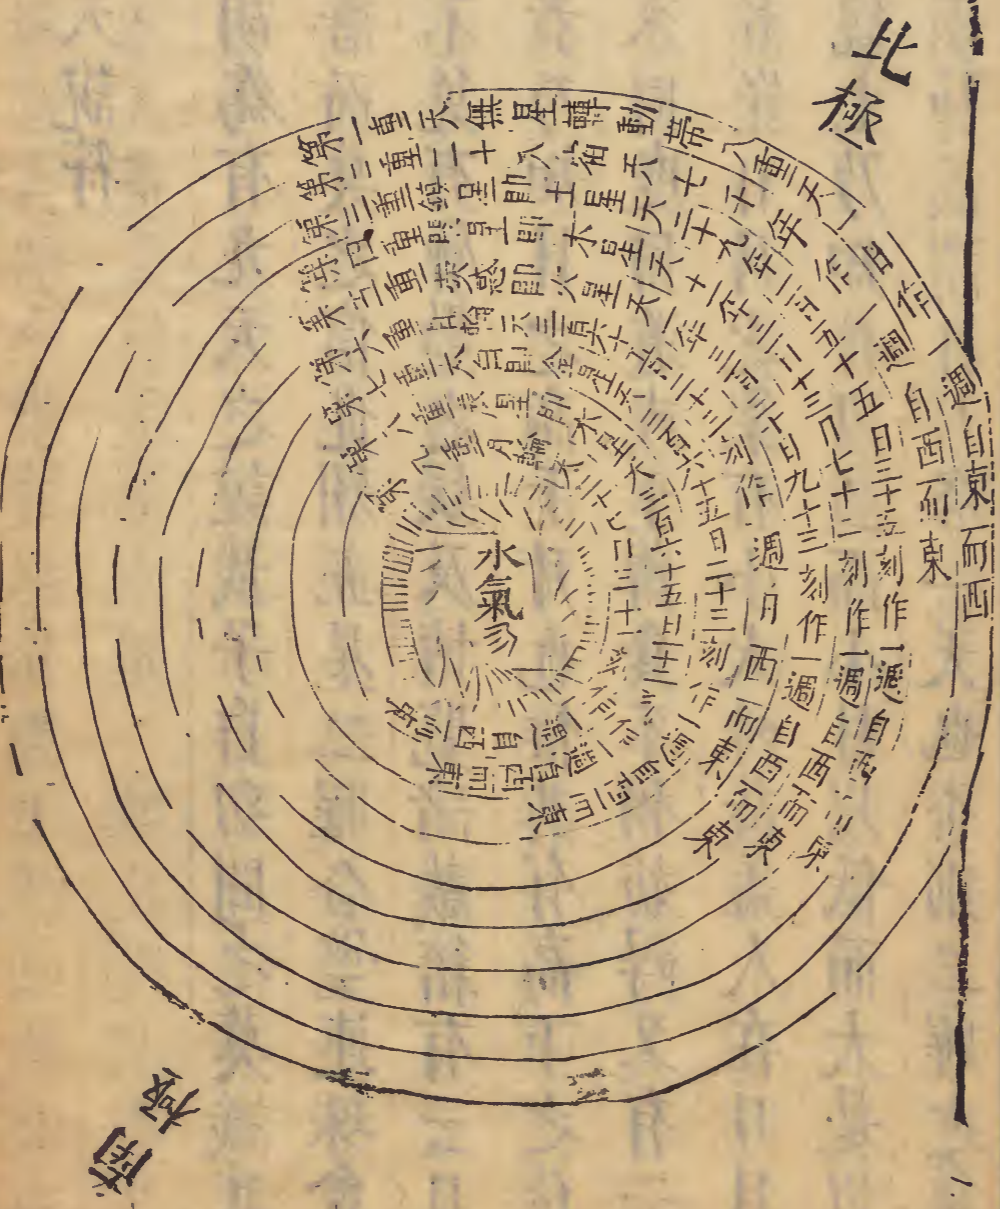 北極
第一重天無星轉動帶八重天一日作一週自東而西
第二重二十八宿天七千年作一週自西而東
第三重鎮星即土星天二十九年一百五十五日三十五刻作一週自西而東
第四重星即木星天十一年三百十三日七十二刻作一週自西而東
第五重熒惑即火星天一年三百二十一日九十三刻作一週自西而東
第六重日輪天三百六十五日二十三刻作一週自西而東
第七重太白即金星天三百六十五日二十三刻作一週自西而東
第八重辰星即水星天三百六十五日二十三刻作一週自西而東
第九重月輪天二十七日三十一刻作一週自西而東
水氣
南極